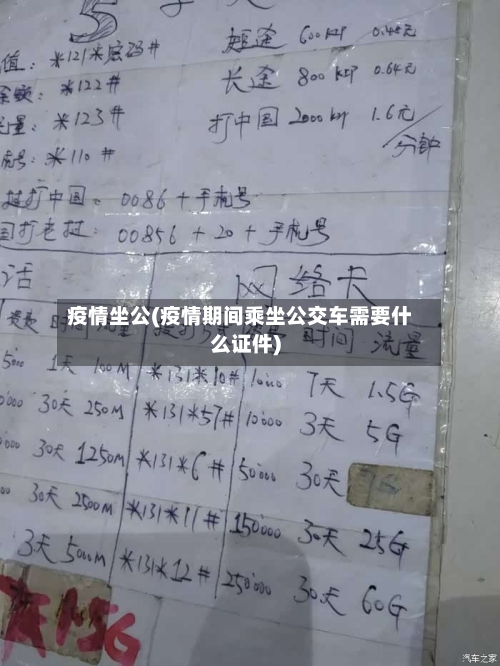 值: *121*底码# 短途 600KP 0.48元
余额: *122# 长途 800KP 0.64元
流量: *123# 打中国 2000KP 1.6元/分钟
*110#
挝打中国: 0086+手机号
国打老挝: 00856+20+手机号
话 网络卡
疫情坐公(疫情期间乘坐公交车需要什
么证件)
费 时间 流量
5000 1天 100M *131*10# 10000 7天 1.5G
30天 250M *131*57# 10000 3天 5G
30天 1250M *131*6# 50000 30天
30天 2500M *131*11# 150000 30天 25G
3天 5000M *131*12# 250000 30天 60G
15G
汽车之家